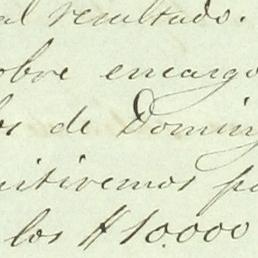 al resultado.
obre encargo
os de Doming
itiremos pa
los $10.000